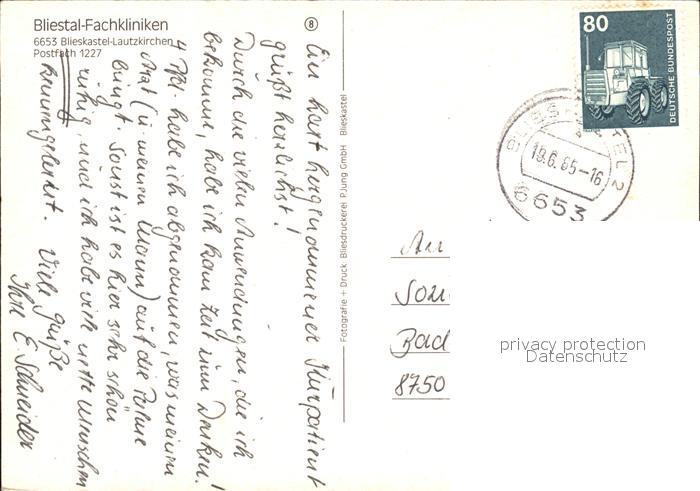 Bliestal-Fachkliniken
6653 Blieskastel-Lautzkirchen
Postfach 1227
8
Ein hart hergenommener Kurpatient
grüßt herzlichst!
Durch die vielen Anwendungen, die ich
bekomme, habe ich kaum Zeit zum Denken!
4 Pfd. habe ich abgenommen, was meinen
Arzt (u. meinen Mann) auf die Palme
bringt. Sonst ist es hier sehr schön
ruhig, und ich habe viele nette Menschen
kennengelernt. Viele Grüße
Ihre E. Schneider
Fotografie + Druck: Bliesdruckerei P.Jung GmbH Blieskastel
80
DEUTSCHE BUNDESPOST
BLIESKASTEL 2
19.6.85-16
6653
An
Bad
8750
privacy protection
Datenschutz